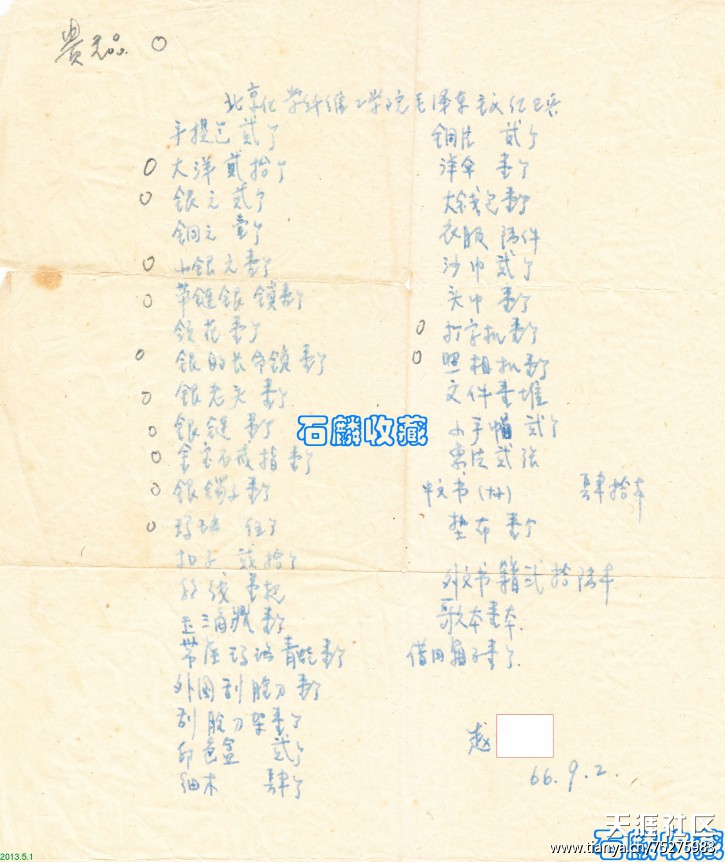 贵元品 〇
北京化学纤维工学院毛泽东主义红卫兵
手提包 贰个
〇 大洋 贰拾个
〇 银元 贰个
铜元 壹个
〇 小银元 壹个
〇 带链银锁壹个
领花壹个
〇 银的长命锁壹个
〇 银老头 壹个
〇 银链 壹个
〇 金宝石戒指壹个
〇 银镯子壹个
〇
扣子 贰拾个
壹把
玉三角 壹个
带座玛瑙青蛙壹个
外国刮脸刀壹个
刮脸刀架壹个
印色盒 贰个
细木 肆个
铜片 贰个
洋伞 壹个
大钱包壹个
衣服 陆件
沙巾 贰个
头巾 壹个
〇 打字机壹个
〇 照相机壹个
文件壹堆
小手帽 贰个
贰张
中文书(册) 肆拾本
垫布 壹个
外文书籍贰拾陆本
歌本壹本
借用箱子壹个
赵
66.9.2.
石麟收藏
石麟收藏
天涯社区
www.tianya.cn/75275983
2013.5.1